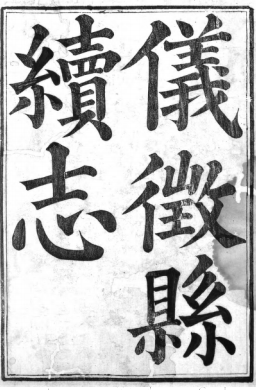 儀徵縣
續志